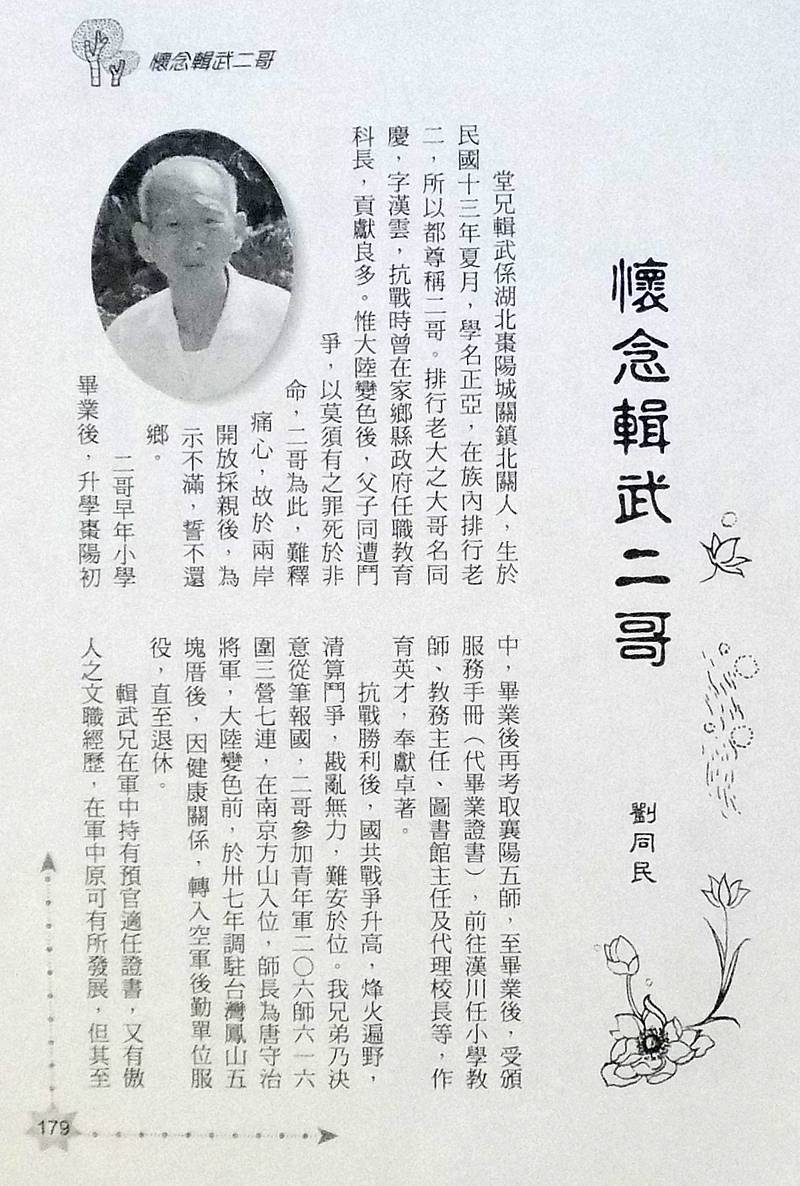 懷念輯武二哥
懷念輯武二哥
劉同民
堂兄輯武係湖北棗陽城關鎮北關人，生於
民國十三年夏月，學名正亞，在族內排行老
二，所以都尊稱二哥。排行老大之大哥名同
慶，字漢雲，抗戰時曾在家鄉縣政府任職教育
科長，貢獻良多。惟大陸變色後，父子同遭鬥
爭，以莫須有之罪死於非
命，二哥為此，難釋
痛心，故於兩岸
開放採親後，為
示不滿，誓不還
鄉。
二哥早年小學
畢業後，升學棗陽初
中，畢業後再考取襄陽五師，至畢業後，受頒
服務手冊（代畢業證書），前往漢川任小學教
師、教務主任、圖書館主任及代理校長等，作
育英才，奉獻卓著。
抗戰勝利後，國共戰爭升高，烽火遍野，
清算鬥爭，戡亂無力，難安於位。我兄弟乃決
意從筆報國，二哥參加青年軍二〇六師六一六
圍三營七連，在南京方山入位，師長為唐守治
將軍，大陸變色前，於卅七年調駐台灣鳳山五
塊厝後，因健康關係，轉入空軍後勤單位服
役，直至退休。
輯武兄在軍中持有預官適任證書，又有傲
人之文職經歷，在軍中原可有所發展，但其至
179